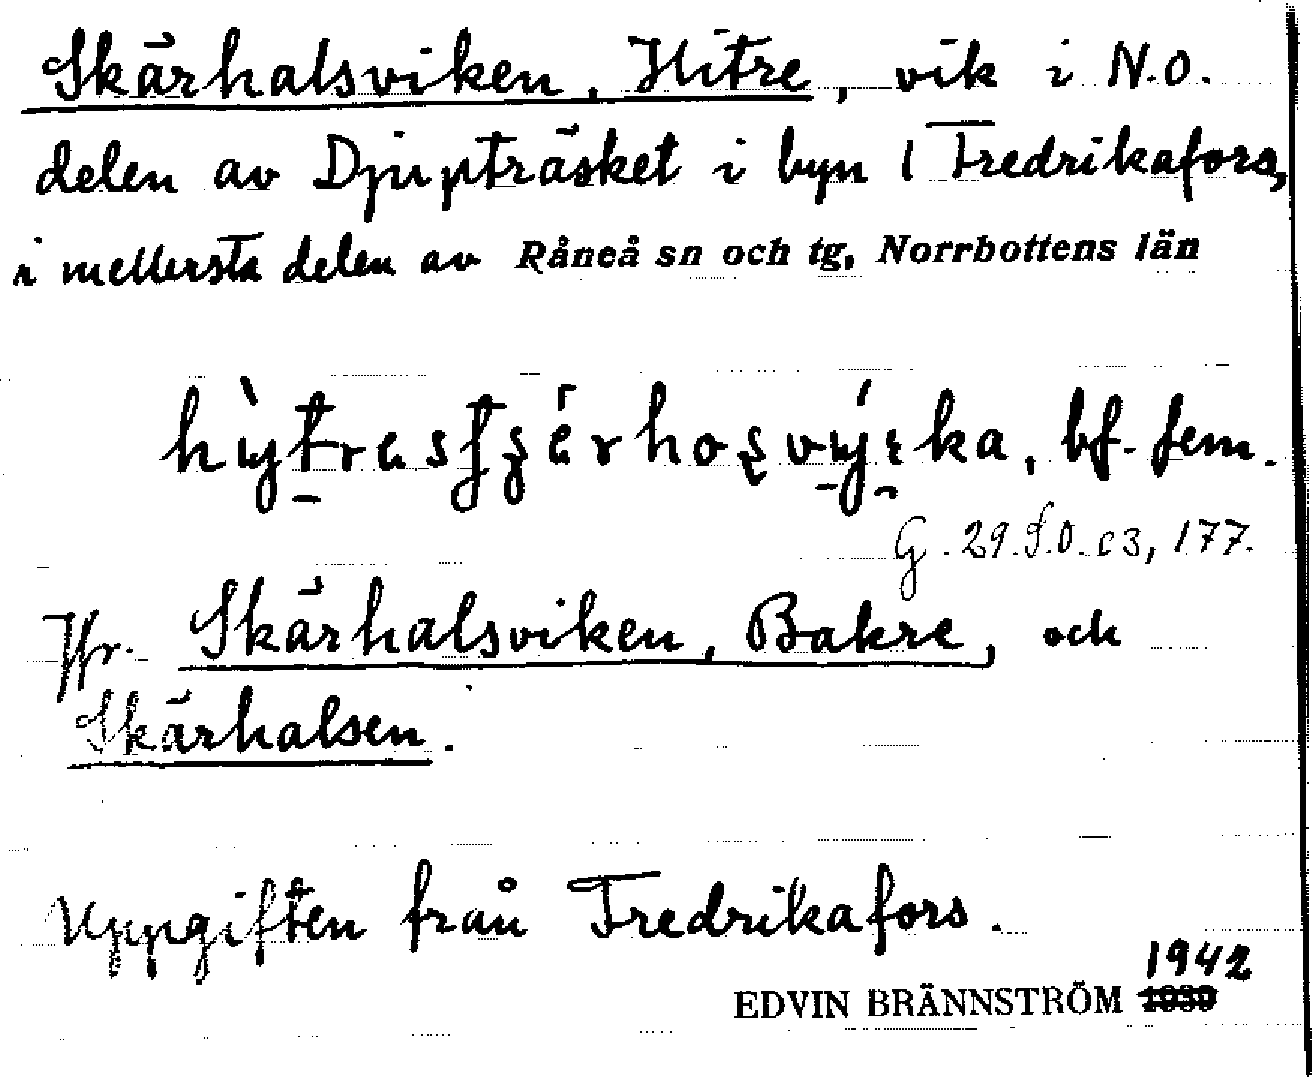 Skärhalsviken, Hitre, vik i N.O.
delen av Djupträsket i byn 1 Fredrikafors,
i mellersta delen av Råneå sn och tg, Norrbottens län
bf. fem.
G. 29. S.O. c3, 177.
Jfr. Skärhalsviken, Bakre, och
Skärhalsen.
Uppgiften från Fredrikafors.
1942
EDVIN BRÄNNSTRÖM 1939